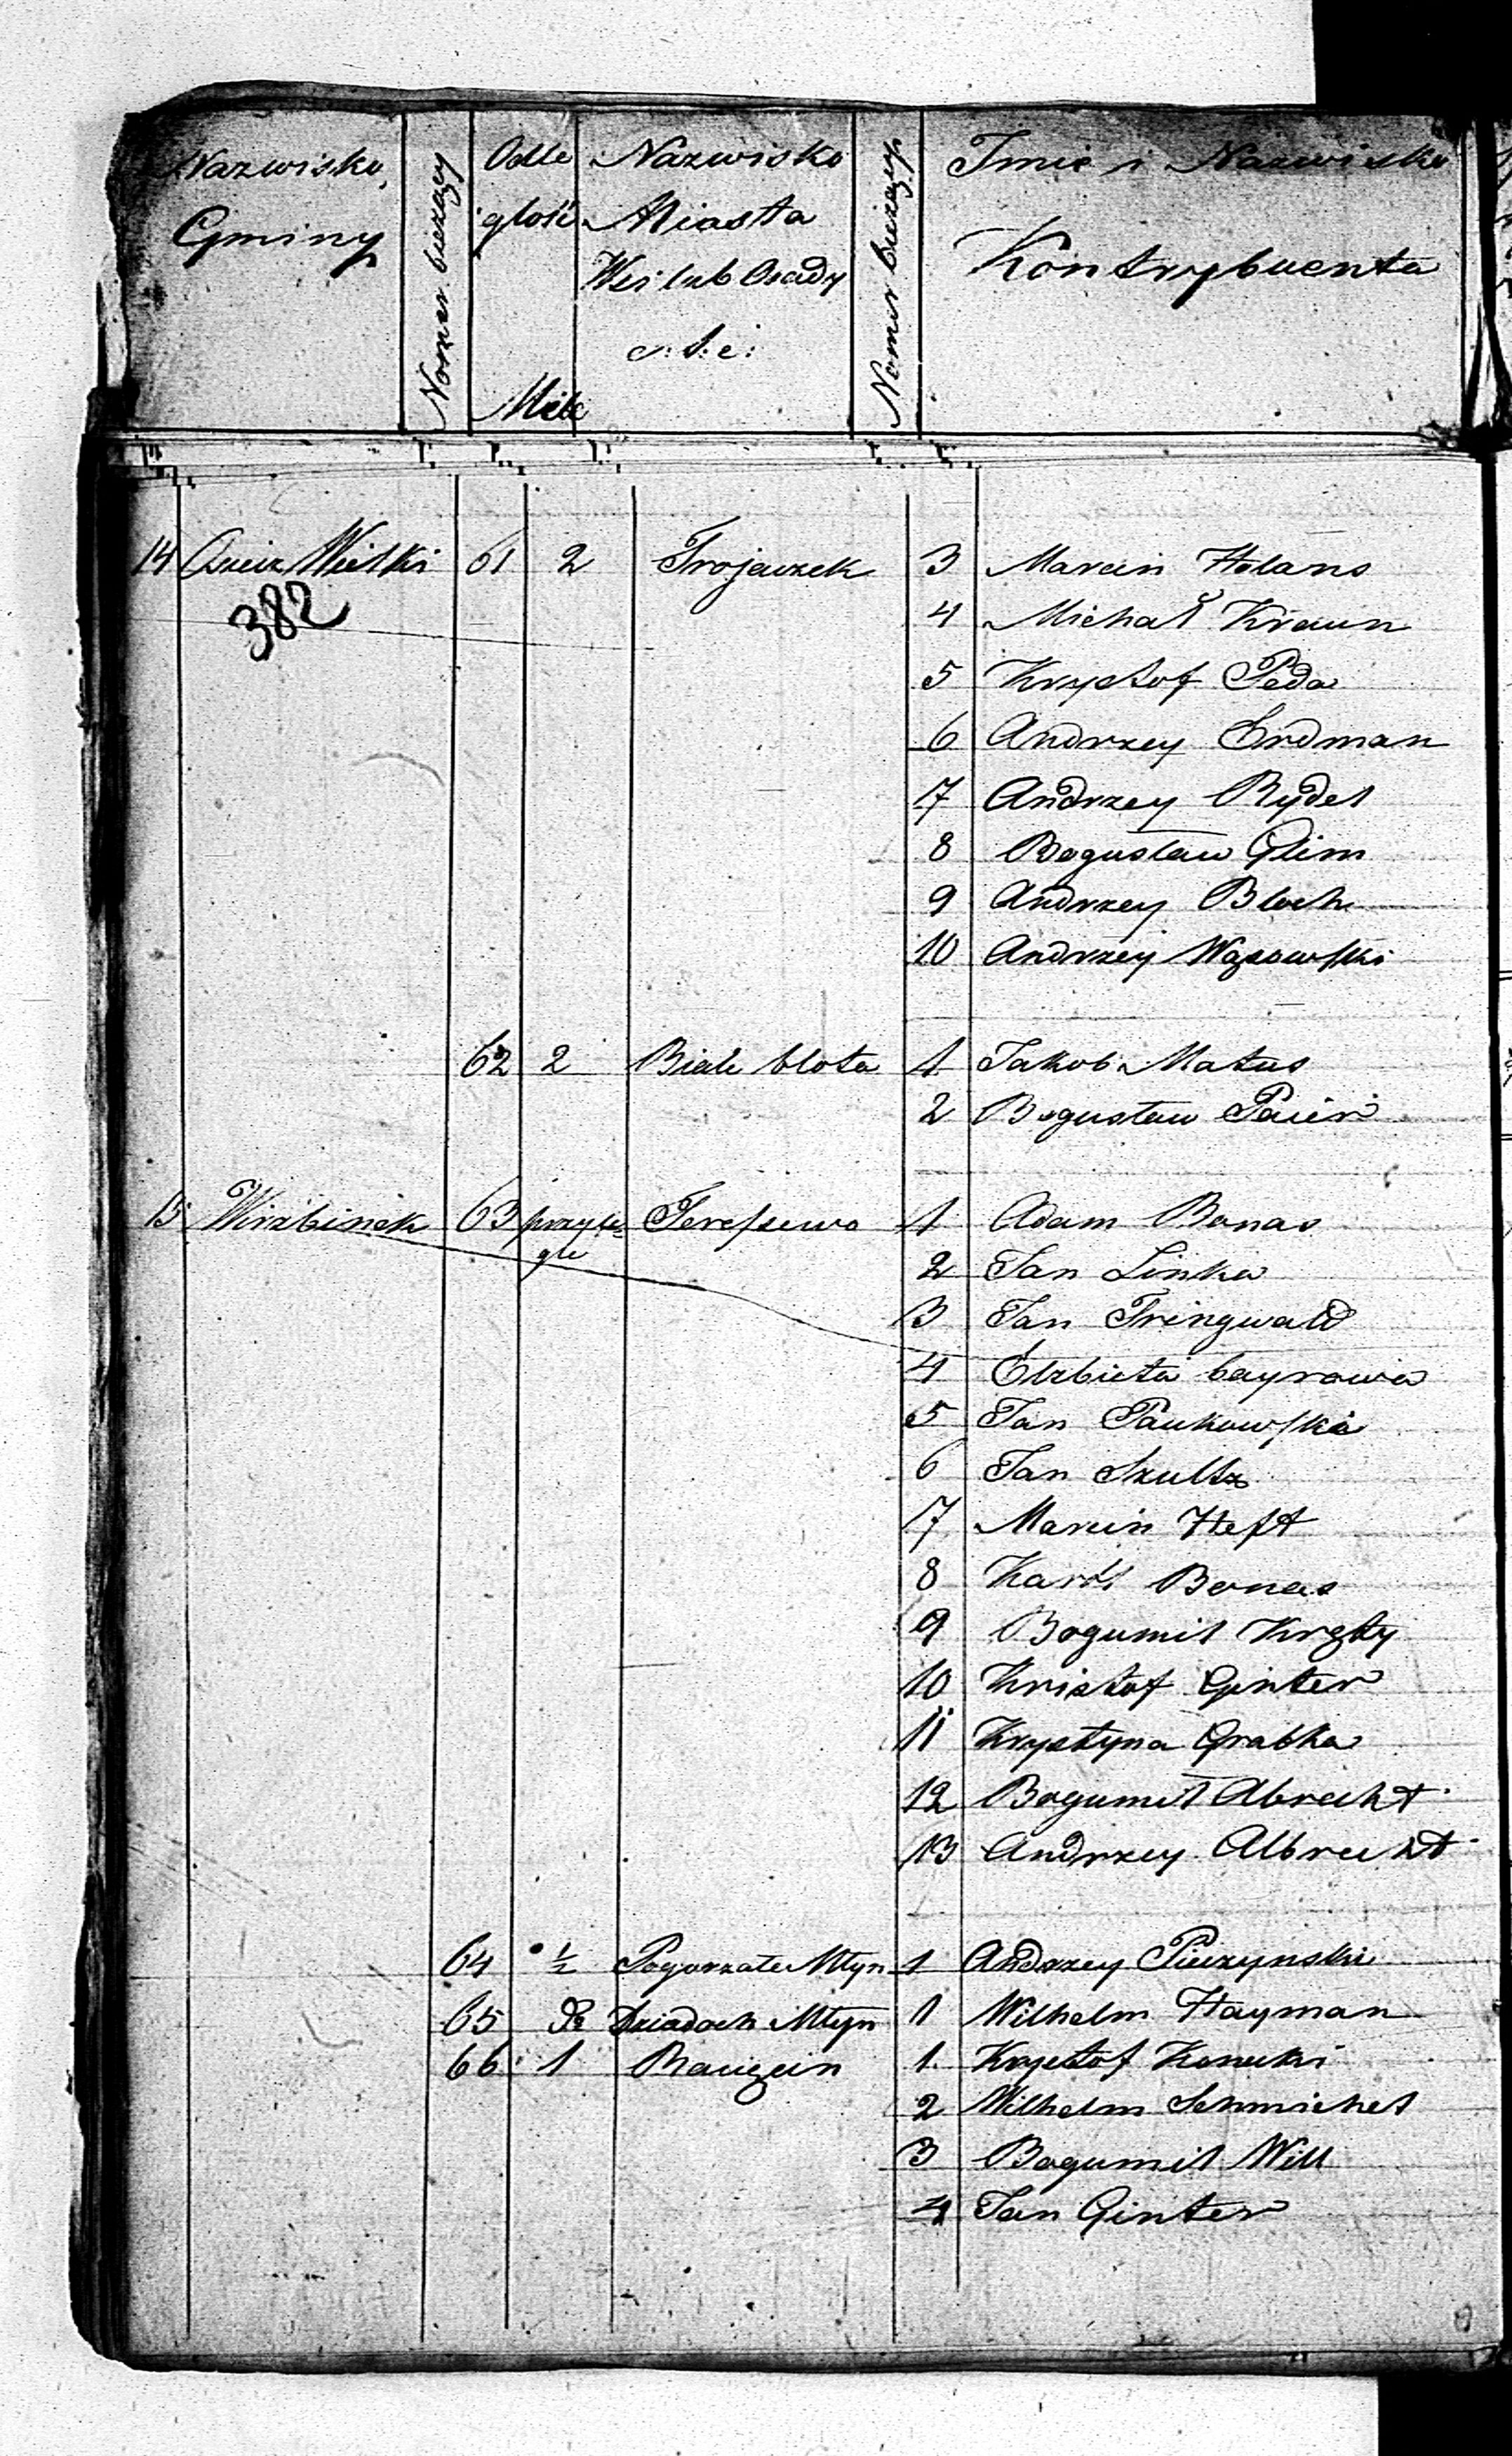 Nazwisko Gminy
Nomer bieżący
Odle głość Mile
Nazwisko Miasta Wsi lub Osady e: t: c:
Nomer bieżący
Imie i Nazwisko Kontrybuenta
14 Wielki 61 2 Trojaczek 3 Marcin Holans
382
4 Michał Kraun
5 Krysztof Peda
6 Andrzey Erdman
7 Andrzey Rydel
8 Bogusław Glim
9 Andrzey Bloch
10 Andrzey Wąsowski
62 2 Białe błota 1 Jakob Matus
2 Bogusław
15 Wirzbinek 63 przyle= Teressewo 1 Adam Bonas
gle
2 Jan Linka
3 Jan Tringwald
4 Elzbieta bayrowa
5 Jan Paukowski
6 Jan Szultz
7 Marcin Heft
8 Karól Bonas
9 Bogumił
10 Kristof Ginter
11 Krystyna Grabka
12 Bogumił Abrecht
13 Andrzey Albrecht
64 ½ Pogorzałe Młyn 1 Andrzey Pieczynski
65 Dziadoch Młyn 1 Wilhelm Hayman
66 1 1 Krysztof Konecki
2 Wilhelm Schmichel
3 Bogumił Will
4 Jan Ginter